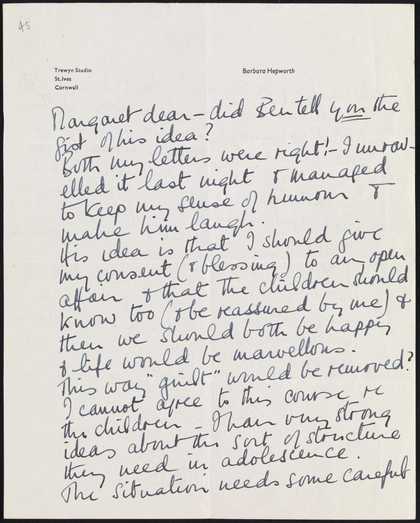 45
Trewyn Studio
St. Ives
Cornwall
Barbara Hepworth
Margaret dear – did Ben tell you the
gist of his idea?
Both my letters were right! – I unrav-
elled it last night & managed
to keep my sense of humour &
make him laugh.
His idea is that I should give
my consent (& blessing) to an open
affair & that the children should
know too (& be reassured by me) &
then we should both be happy
& life would be marvellous.
This way "guilt" would be removed?
I cannot agree to this course re
the children – I have very strong
ideas about the sort of structure
they need in adolescence.
The situation needs some careful